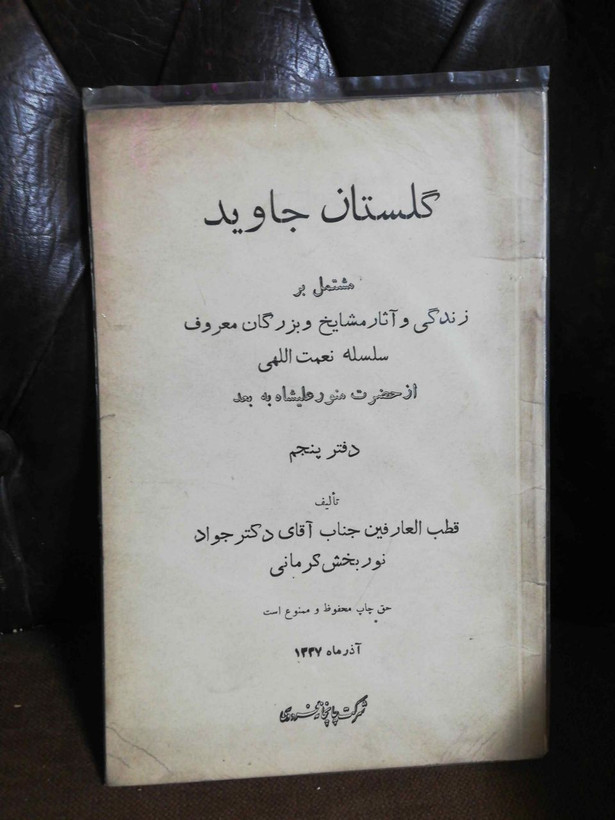 گلستان جاوید
مشتمل بر
زندگی و آثار مشایخ و بزرگان معروف
سلسله نعمت اللهی
از حضرت منور علیشاه به بعد
دفتر پنجم
تألیف
قطب العارفین جناب آقای دکتر جواد
نور بخش کرمانی
حق چاپ محفوظ و ممنوع است
آذر ماه ۱۳۳۷
شرکت چاپخانه فردوسی